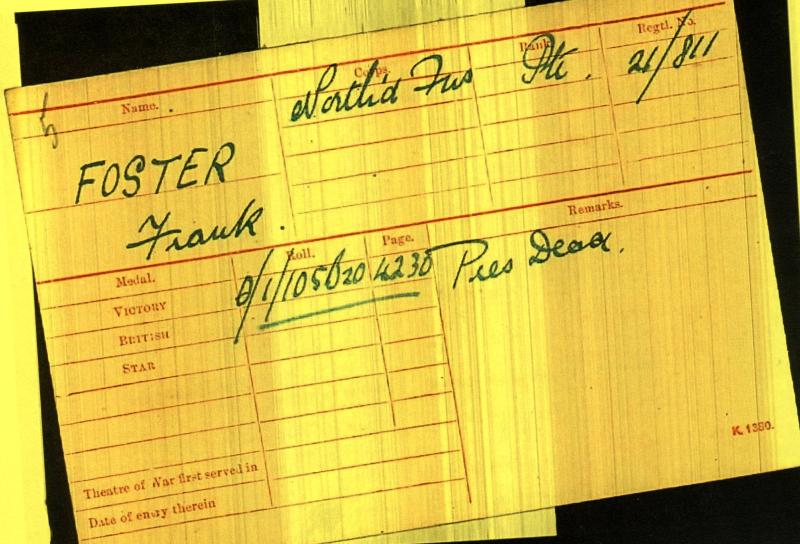 Name. Corps. Rank. Regtl. No.
North'd Fus Pte. 21/811
FOSTER
Frank.
Medal. Roll. Page. Remarks.
VICTORY 4230 Pres Dead.
BRITISH
STAR
K. 1380.
Theatre of War first served in
Date of entry therein